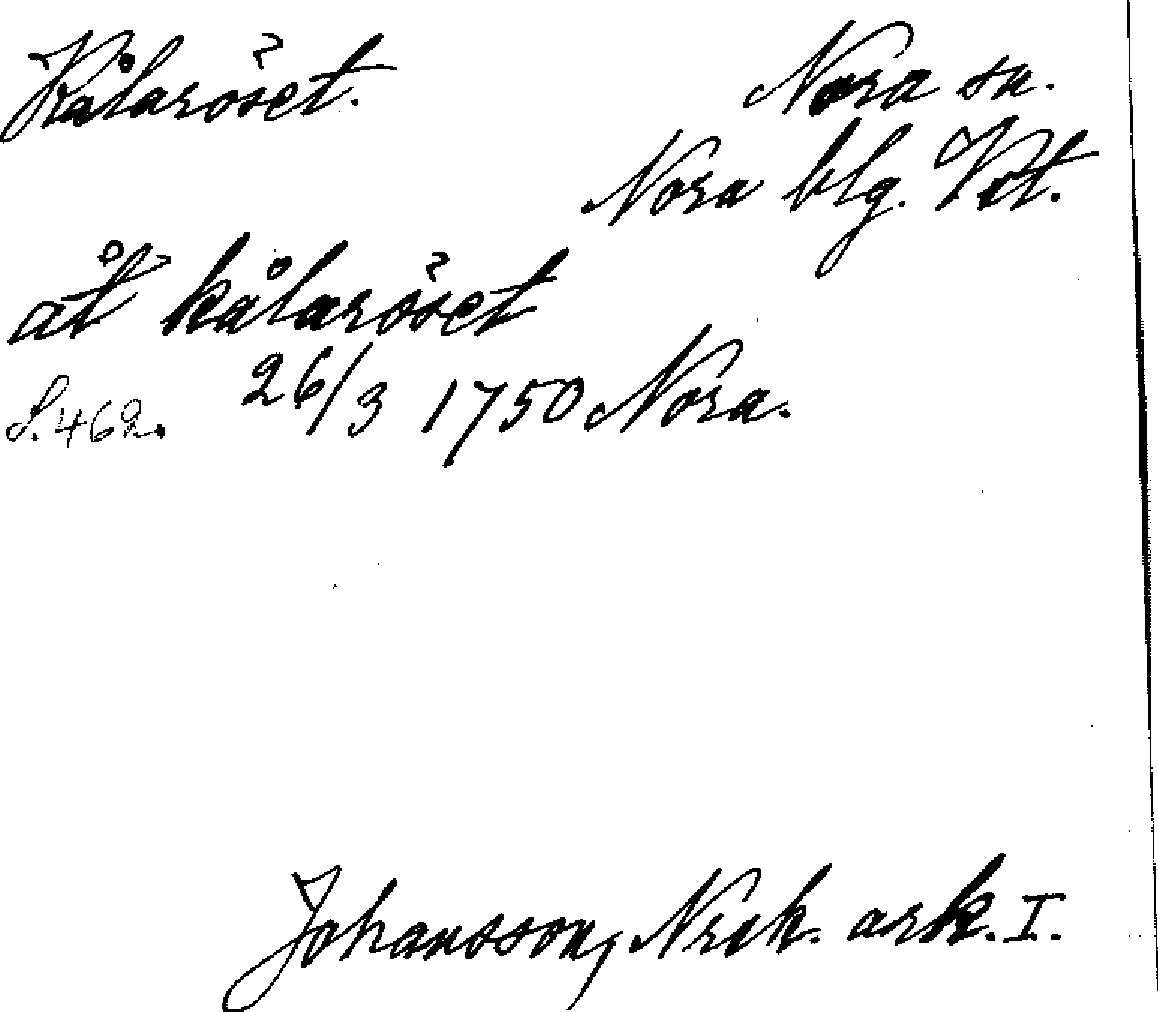 Kålaröset.
Nora sn.
Nora blg. Vstml.
åt kålaröset
S. 462. 26/3 1750 Nora.
Johansson, Nrck. ark. I.